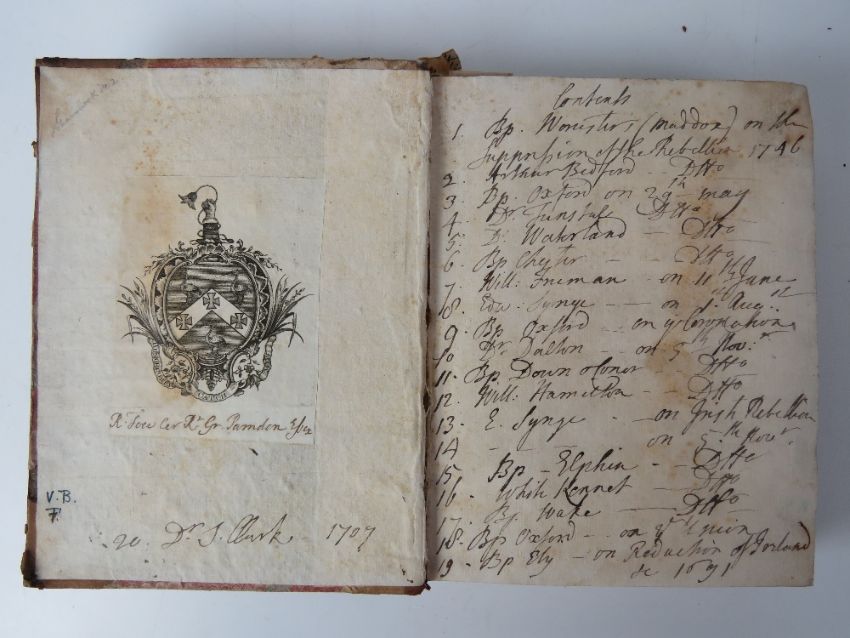 V.B.
7.
20. Dr. J. Clark - 1707
Contents
1. Bp. Worcester's (Maddox) on the
Suppression of the Rebellion 1746
2. Arthur Bedford - Ditto
3. Bp. Oxford on 29th May
4. Dr. Tunstale Ditto
5. Dr. Waterland - Ditto
6. Bp Chester - Ditto
7. Will: Freman - on 11th June
8. Edw: Synge - on 1st Aug:st
9. Bp. Oxford - on ye Coronation
10. Dr. Dalton - on 5th Nov:r
11. Bp. Down & Conor - Ditto
12. Will: Hamilton - Ditto
13. E. Synge - on Irish Rebellion
14. - - on 5th Novr.
15. Bp - Elphin - Ditto
16. White Kennet - Ditto
17. Bp. Wake - Ditto
18. Bp. Oxford - on ye Union
19. Bp Ely - on Reduction of Ireland
&c 1691